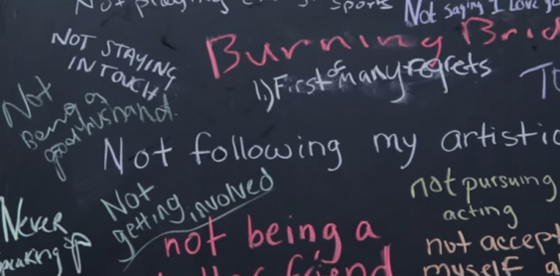 Not
sports
Not saying I Love
NOT STAYING
IN TOUCH!
Burning
1.) First of many regrets
Not
Being a
good husband.
Not following my artistic
Not
getting involved
not pursuing
acting
Never
not being a
friend
not accept
myself